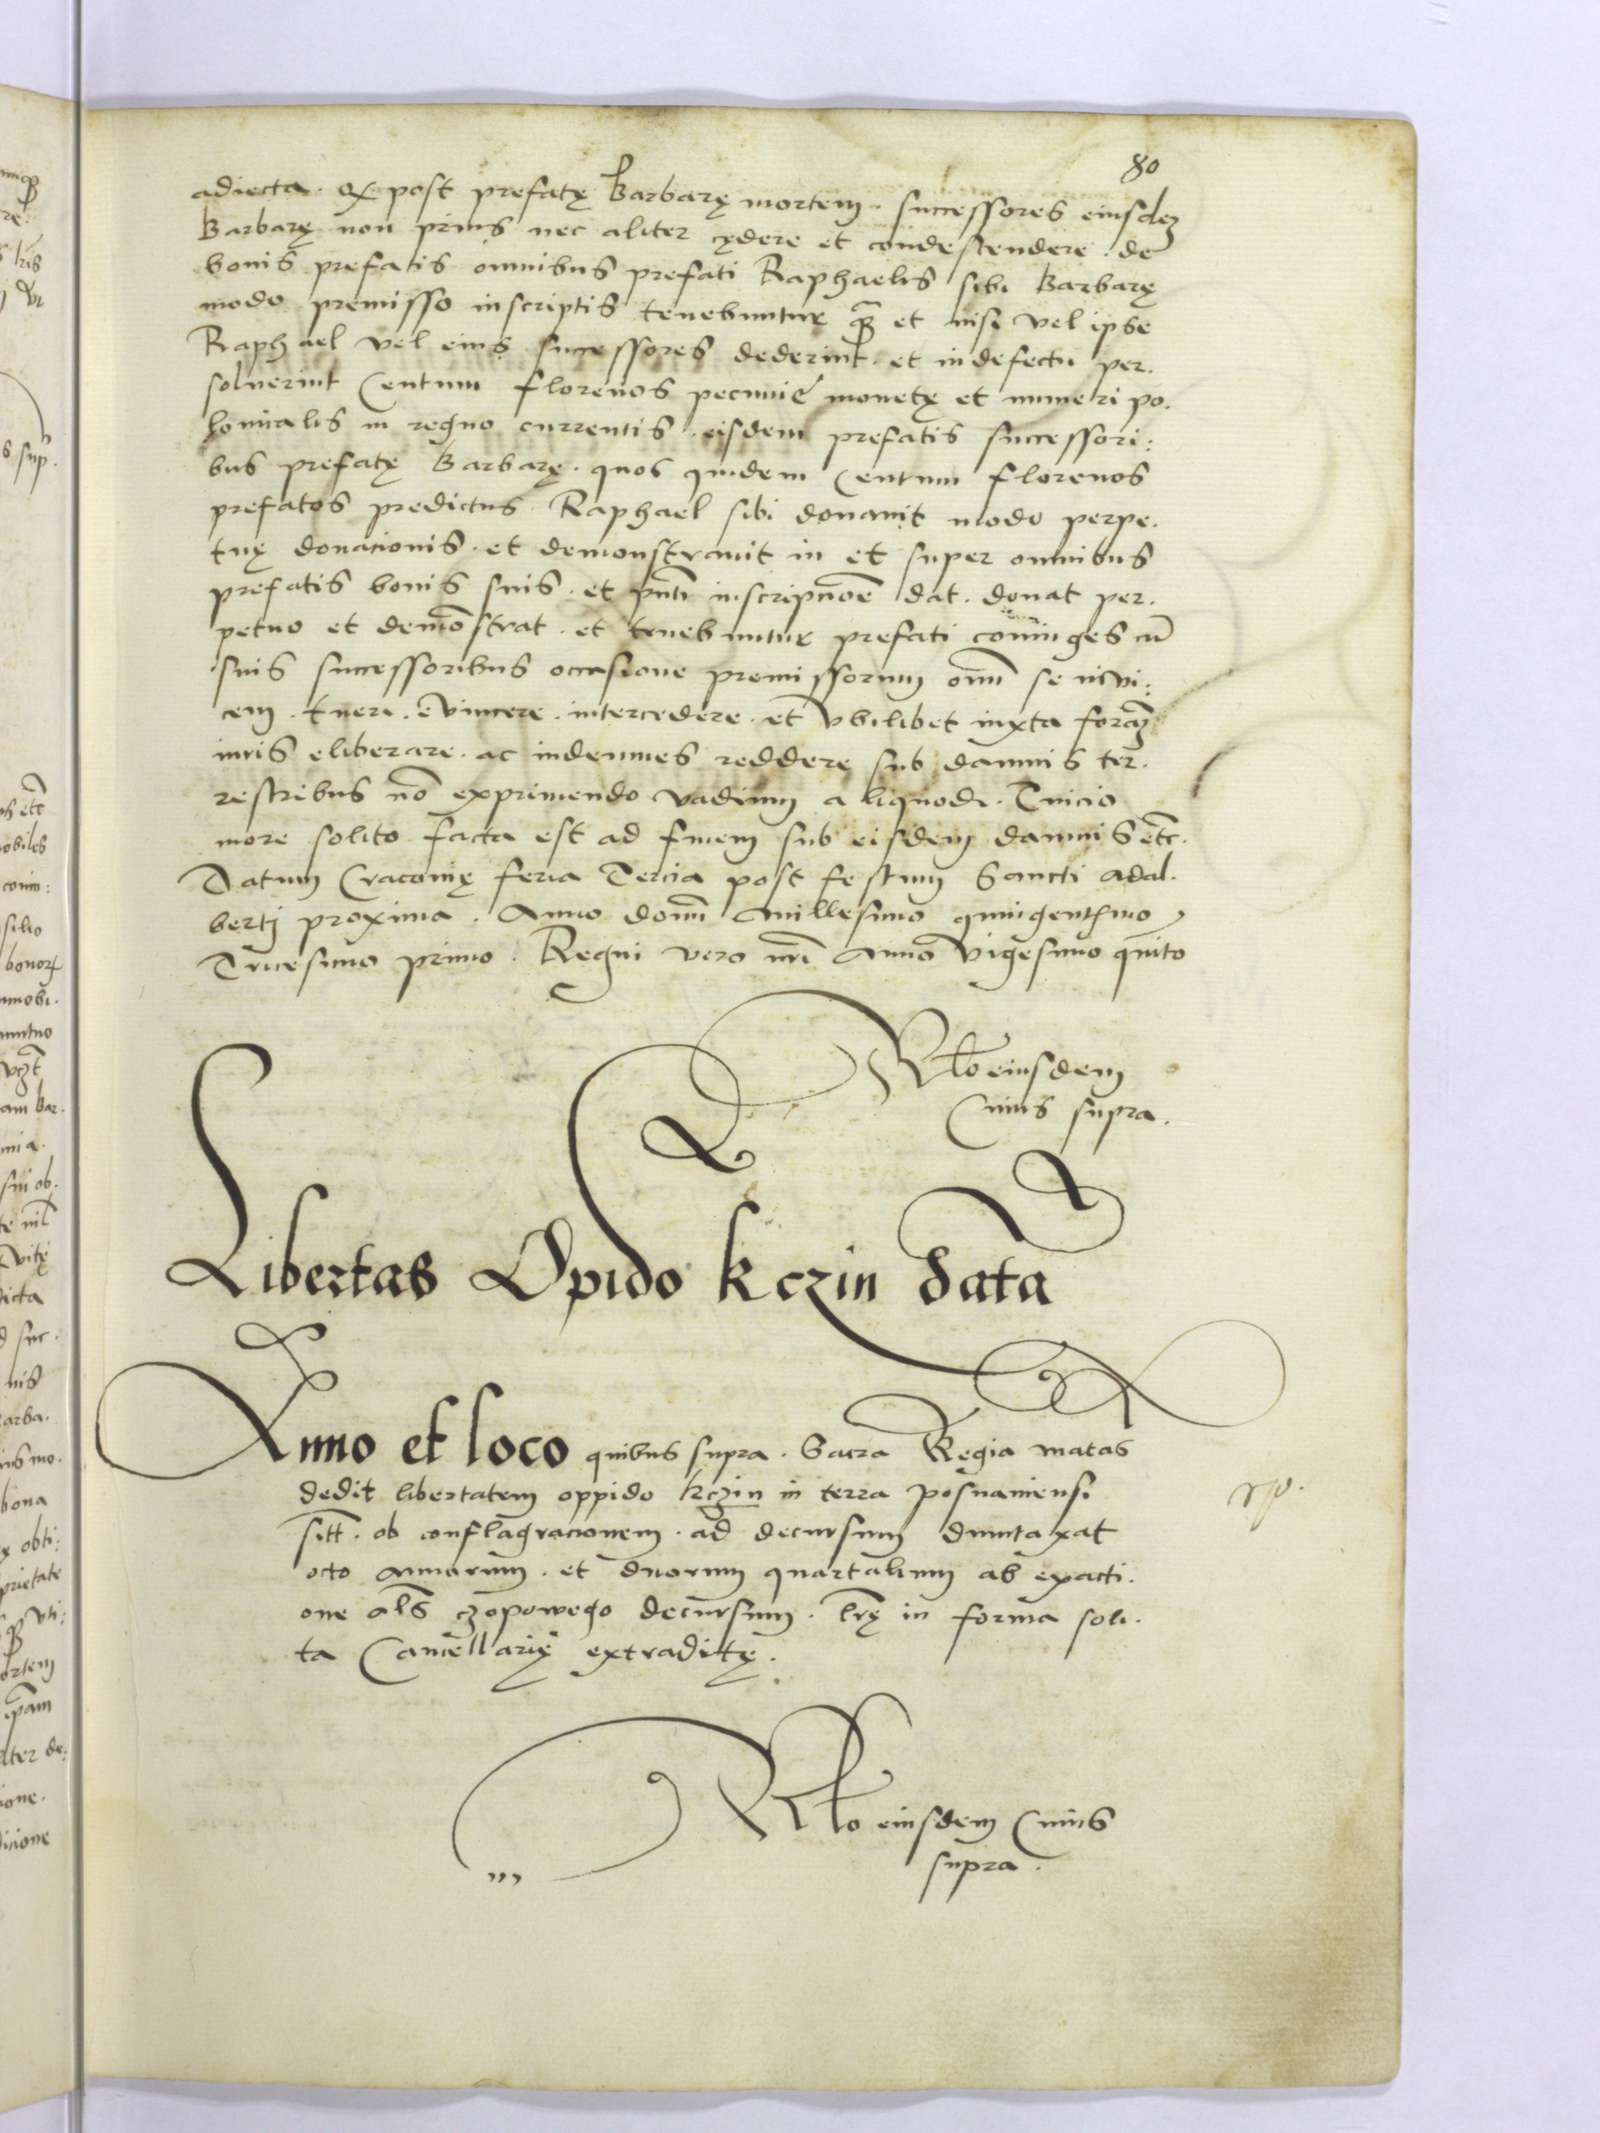 80
adiecta. qꝫ post prefatę Barbarę mortem. successores eiusdeꝫ
Barbarę non prius nec aliter cędere et condescendere. de
bonis prefatis omnibus prefati Raphaelis sibi Barbarę
modo premisso inscriptis tenebuntur q̄ꝫ et nisi vel ipse
Raphael vel eius successores dederint. et in defectu per.
soluerint Centum florenos pecunię monetę et numeri po.
lonicalis in regno currentis. eisdem prefatis successori:
bus prefatę Barbarę. quos quidem Centum florenos
prefatos predictus Raphael sibi donauit modo perpe.
tuę donacionis. et demonstrauit in et super omnibus
prefatis bonis suis. et pn̄ti inscripcōe dat. donat per.
petuo et demōstrat. et tenebuntur prefati coniuges cū
suis successoribus occasione premissorum om̄ se invi:
cem. tueri. evincere. intercedere. et vbilibet iuxta formā
iuris eliberare. ac indemnes reddere sub damnis ter.
restribus nō exprimendo vadium aliquodi. Tuicio
more solito facta est ad finem sub eisdem damnis etc̄.
Datum Cracovię feria Tercia post festum Sancti adal.
berti proxima. Anno domī Millesimo quingentesimo
Tricesimo primo. Regni vero nr̄i Anno Vigesimo quīto
Rl̄o eiusdem
Cuius supra.
Libertas Opido kczin data
Anno et loco quibus supra. Sacra Regia matas
dedit libertatem oppido kczin in terra posnaniensi
sitt̄. ob conflagracionem. ad decursum duntaxat
octo annorum. et duorum quartalium ab exacti.
one al̄s czopowego decursum. lr̄ę in forma soli.
ta Cancellarię extraditę.
Rl̄o eiusdem Cuius
supra.